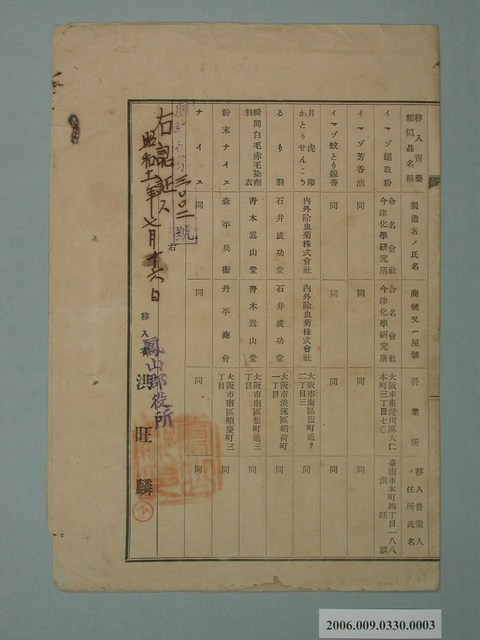 移入賣藥類似品名稱 製造者ノ氏名 商號又ハ屋號 營業所 移入營業人ノ住所氏名
イマヅ蠅取粉 合名會社今津化學研究所 合名會社今津化學研究所 大阪市東淀川區大仁本町三丁目七〇 臺南市本町四丁目一八八 洪旺麟
イマヅ芳香油 同 同 同 同
イマヅ蚊とり線香 同 同 同 同
月虎印かとりせんこう 內外除虫菊株式會社 內外除虫菊株式會社 大阪市南區鹽町通リ二丁目三 同
るり羽 石井成功堂 石井成功堂 大阪市浪速區稻荷町一丁目 同
瞬間白毛赤毛染劑 羽衣 青木嵩山堂 青木嵩山堂 大阪市南區鹽町通三丁目 同
粉末ナイス 森平兵衞 丹平商會 大阪市南區順慶町三丁目 同
ナイス 同 同 同 同
三〇〇二號
右
右認証ス
昭和十一年七月十六日
鳳山郡役所
移入者 洪旺麟
2006.009.0330.0003